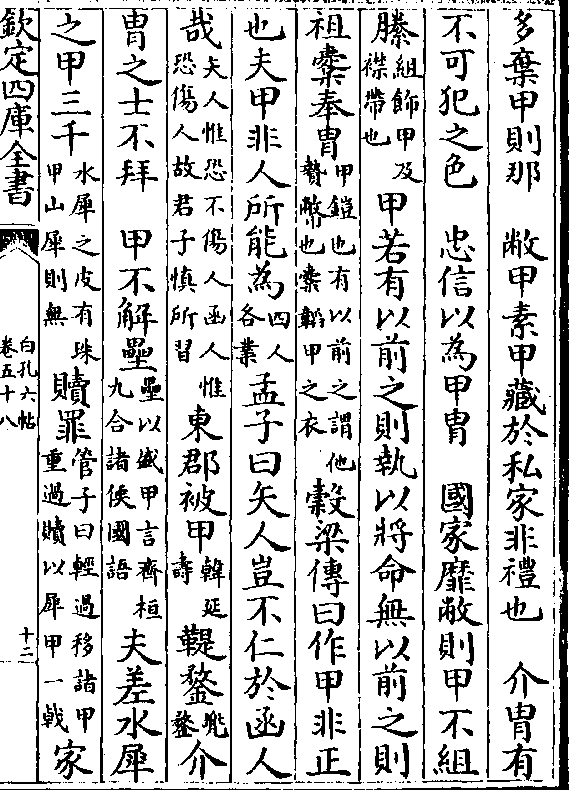 多棄甲則那　敝甲素甲藏於私家非禮也　介胄有
不可犯之色　忠信以為甲冑　國家靡敝則甲不組
縢組飾甲及襟帶也　甲若有以前之則執以將命無以前之則
袒櫜奉胄甲鎧也有以前之謂他贄幣也櫜韜甲之衣　榖梁傳曰作甲非正
也夫甲非人所能為四人各業　孟子曰矢人豈不仁於函人
哉矢人惟恐不傷人函人惟恐傷人故君子慎所習　東郡被甲韓延壽　鞮鍪兜鍪　介
胄之士不拜　甲不解壘壘以盛甲言齊桓九合諸侯國語　夫差水犀
之甲三千水犀之皮有珠甲山犀則無　贖罪管子曰輕過移諸甲重過贖以犀甲一㦸　家
欽定四庫全書
白孔六帖
卷五十八
十二